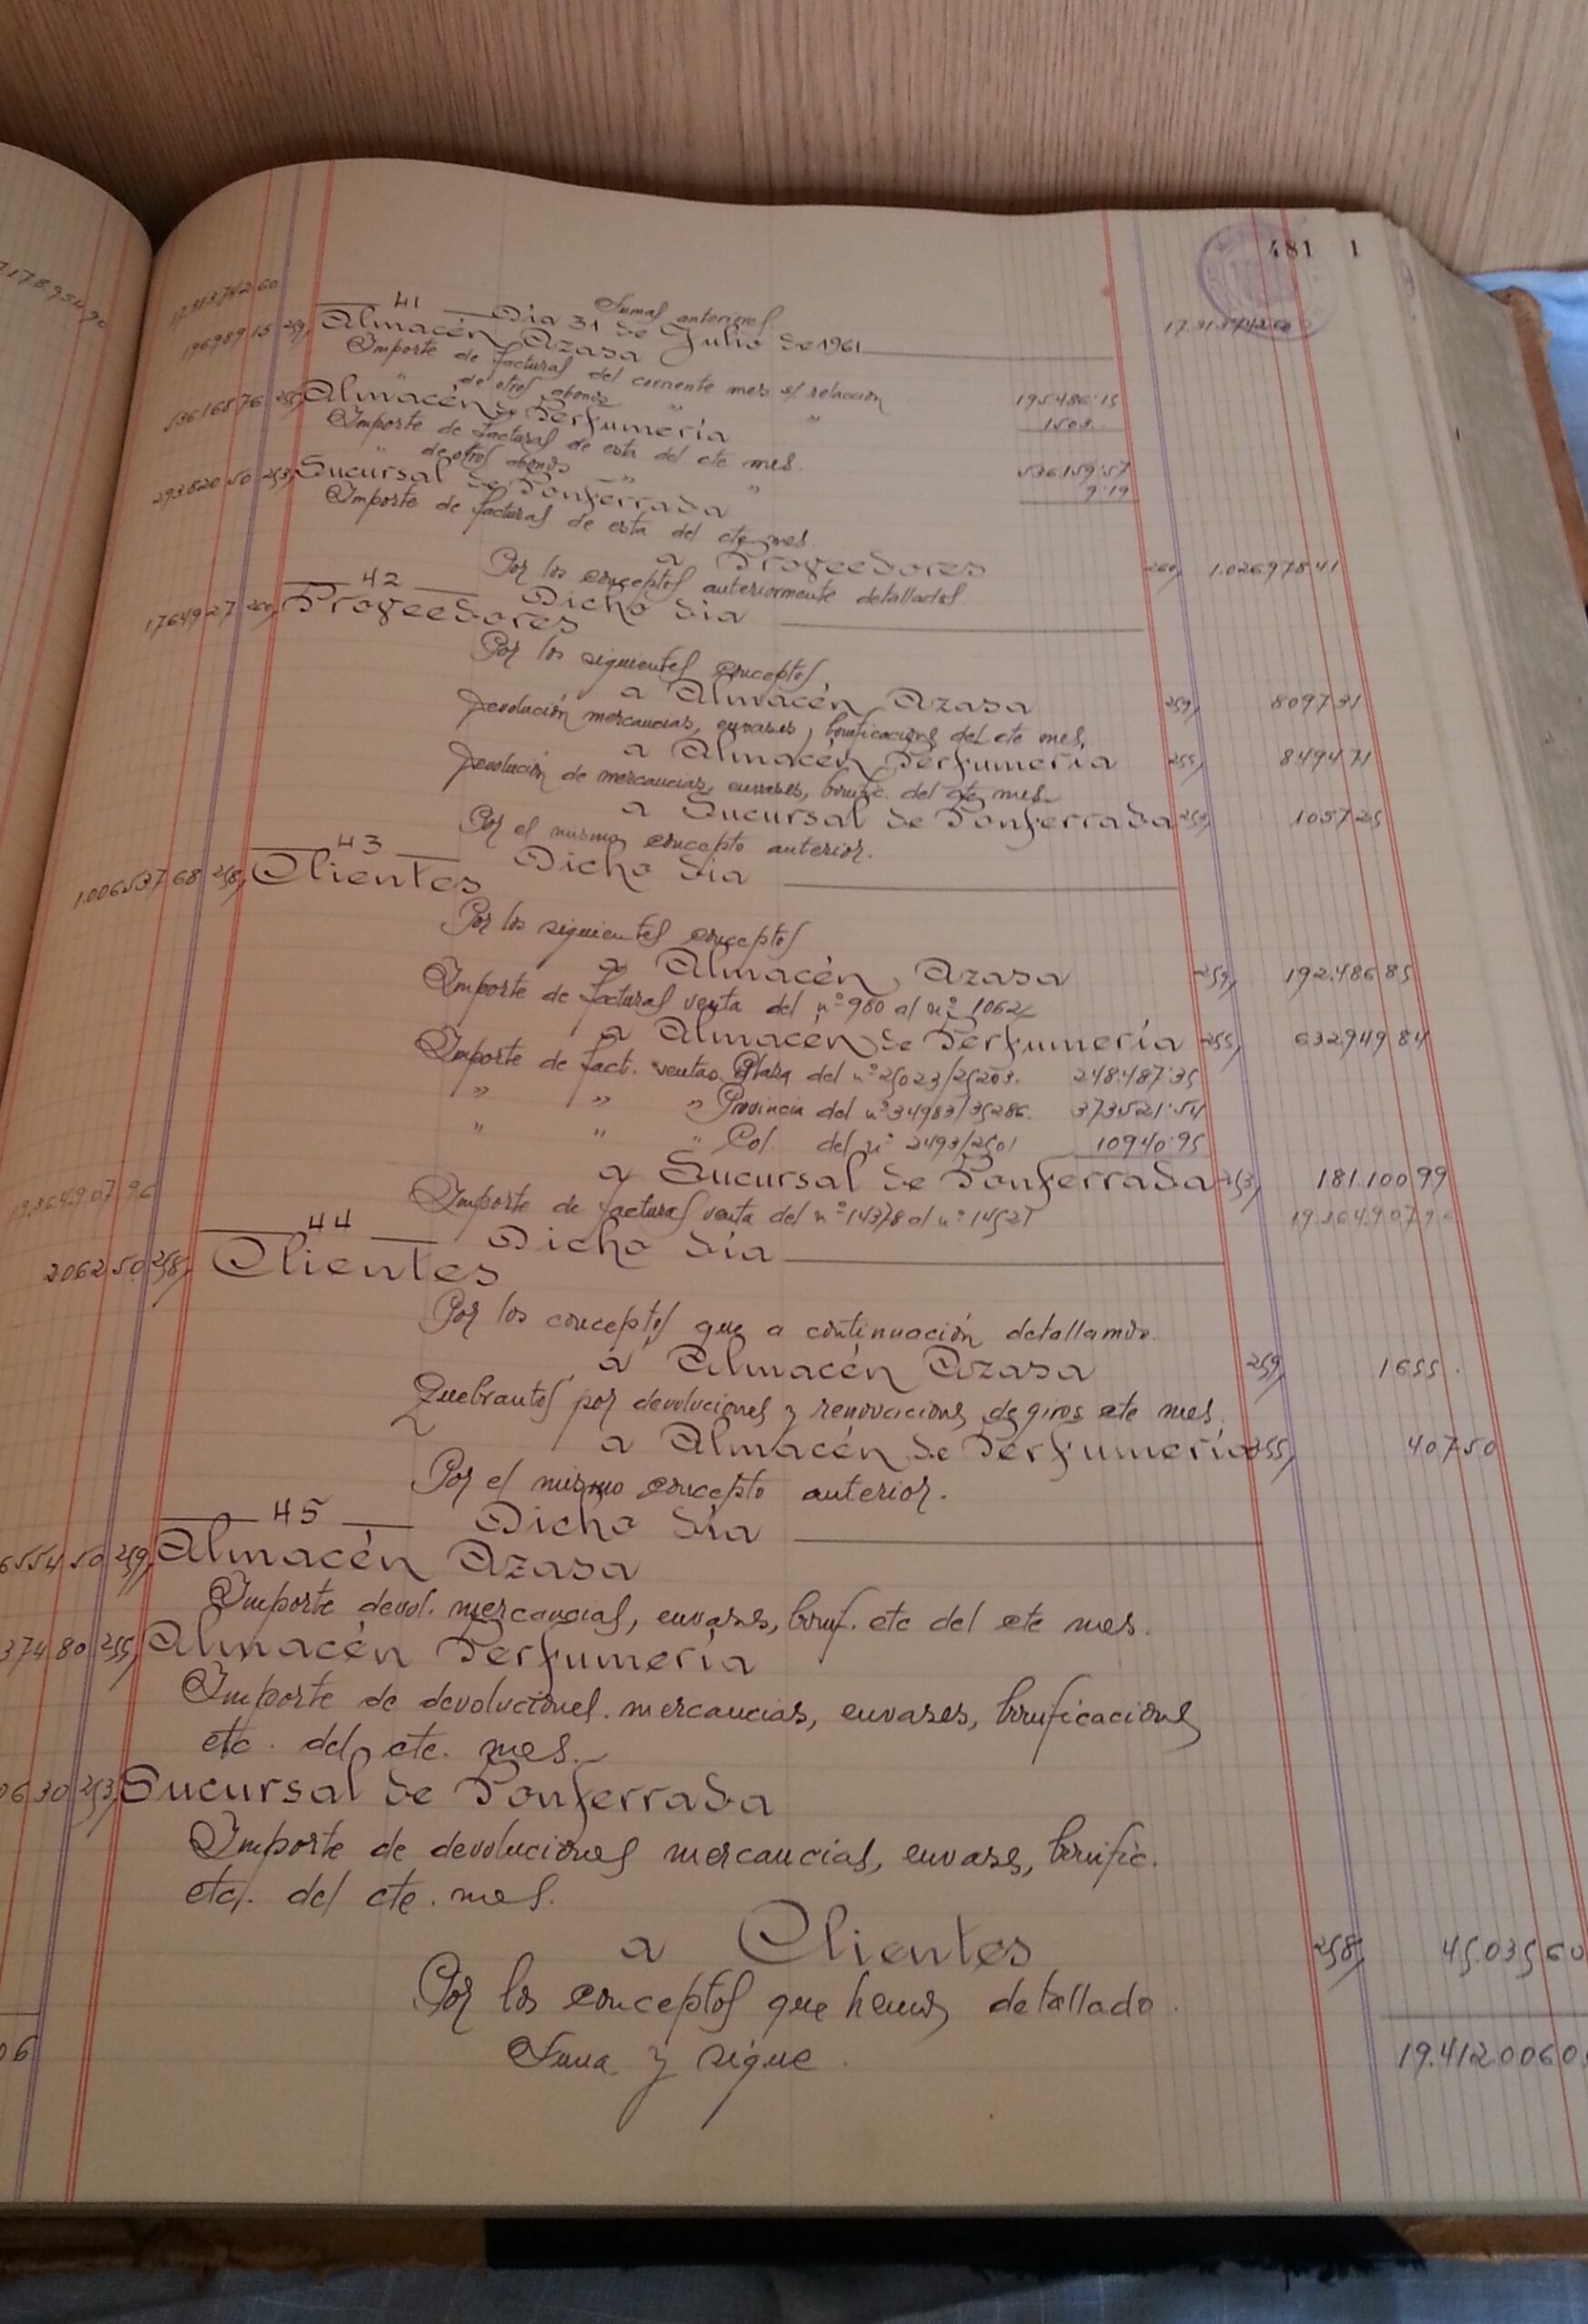 481 1
Sumas anteriores
41 Día 31 de Julio de 1961
259 Almacén Azasa
Importe de facturas del corriente mes s/ relación 195.486'15
" de otros abonos " " 1503.
536168 76 255 Almacén de Perfumería
Importe de facturas de esta del cte mes. 536159'57
" de otros abonos " " 9'19
293820 50 253 Sucursal de Ponferrada
Importe de facturas de esta del cte mes
a Proveedores 260 1.026978 41
Por los conceptos anteriormente detallados
42 Dicho día
17649 27 260 Proveedores
Por los siguientes conceptos
a Almacén Azasa 259 8097 31
Devolución mercancias, envases, bonificaciones del cte mes,
a Almacén Perfumería 255 8494 71
Devolución de mercancias, envases, bonific. del cte mes
a Sucursal de Ponferrada 253 1057 25
Por el mismo concepto anterior.
43 Dicho día
1.006537 68 258 Clientes
Por los siguientes conceptos
a Almacén Azasa 259 192.486 85
Importe de facturas venta del nº 980 al nº 1062
a Almacén de Perfumería 255 632949 84
Importe de fact. ventas Plaza del nº 25023/25203. 248.487'35
" " " Provincia del nº 34983/35286. 373.521'54
" " " Col. del nº 2493/2501 10940'95
a Sucursal de Ponferrada 253 181.100 99
Importe de facturas venta del nº 14378 al nº 14527
19.364.907 96 19.364.907 96
44 Dicho día
2062 50 258 Clientes
Por los conceptos que a continuación detallamos
a Almacén Azasa 259 1655.
Quebrantos por devoluciones y renovaciones de giros cte mes
a Almacén de Perfumería 255 407 50
Por el mismo concepto anterior.
45 Dicho día
6554 50 259 Almacén Azasa
Importe devol. mercancias, envases, bonif. etc del cte mes.
374 80 255 Almacén Perfumería
Importe de devoluciones. mercancias, envases, bonificaciones
etc. del cte. mes.
06 30 253 Sucursal de Ponferrada
Importe de devoluciones mercancias, envases, bonific.
etc. del cte. mes.
a Clientes 258 45.035 60
Por los conceptos que hemos detallado.
06 Suma y sigue. 19.412.006 0